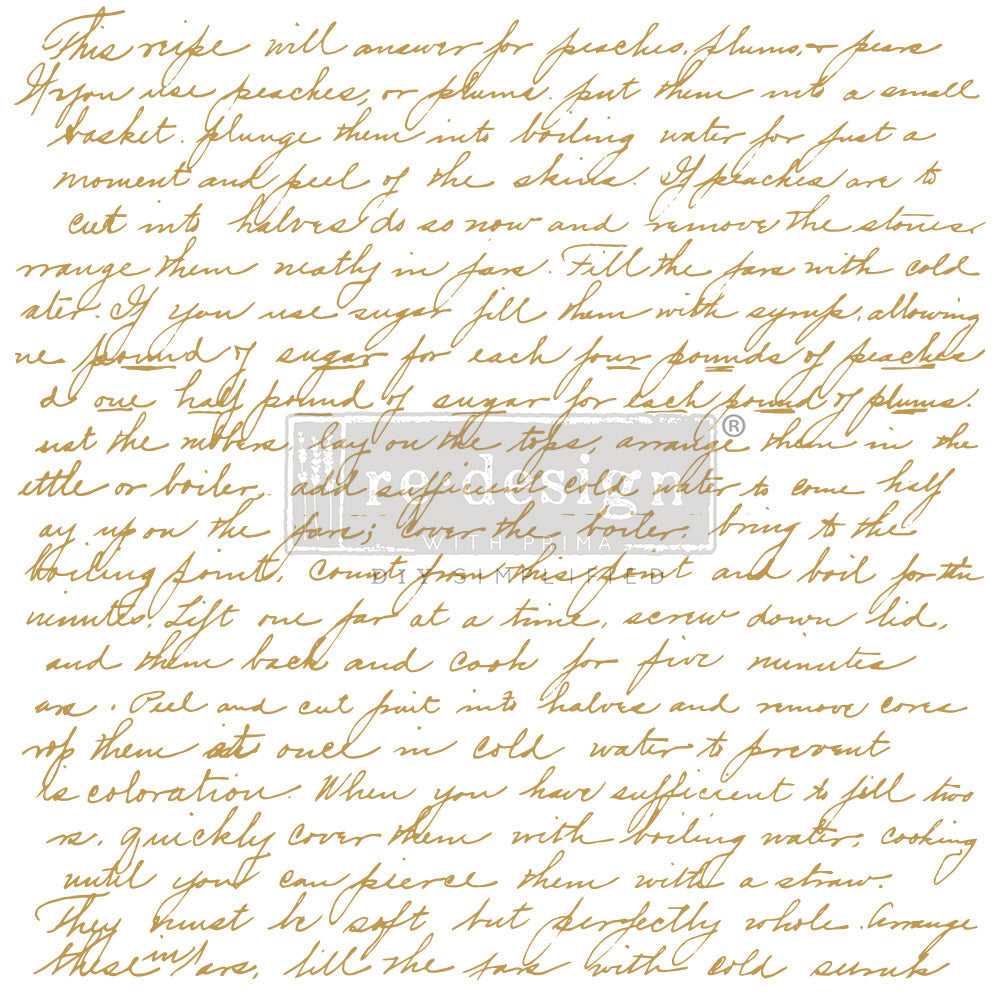 This reipe will answer for peaches, plums, & pears
If you use peaches, or plums. put them into a small
basket. plunge them into boiling water for just a
moment and peel of the skins. If peaches are to
cut into halves do so now and remove the stones.
rrange them neatly in jars. Fill the jars with cold
ater. If you use sugar fill them with syrup, allowing
ne pound of sugar for each four pounds of peaches
d one half pound of sugar for each pound of plums.
ust the rubbers, lay on the tops, arrange them in the
ettle or boiler, add sufficient cold water to come half
ay up on the jars; cover the boiler, bring to the
boiling point, count from this point and boil for ten
minutes. Lift one jar at a time, screw down lid,
and them back and cook for five minutes
ars. Peel and cut fruit into halves and remove cores
rop them at once in cold water to prevent
is coloration. When you have sufficient to fill two
rs, quickly cover them with boiling water, cooking
until you can pierce them with a straw.
They must be soft, but perfectly whole. Arrange
these in jars, fill the jars with cold
re·design®
WITH PRIMA
DIY SIMPLIFIED